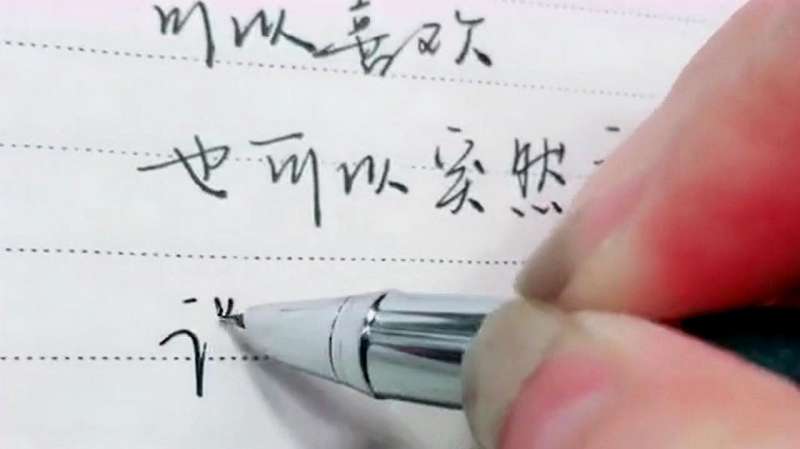 可以喜欢
也可以突然